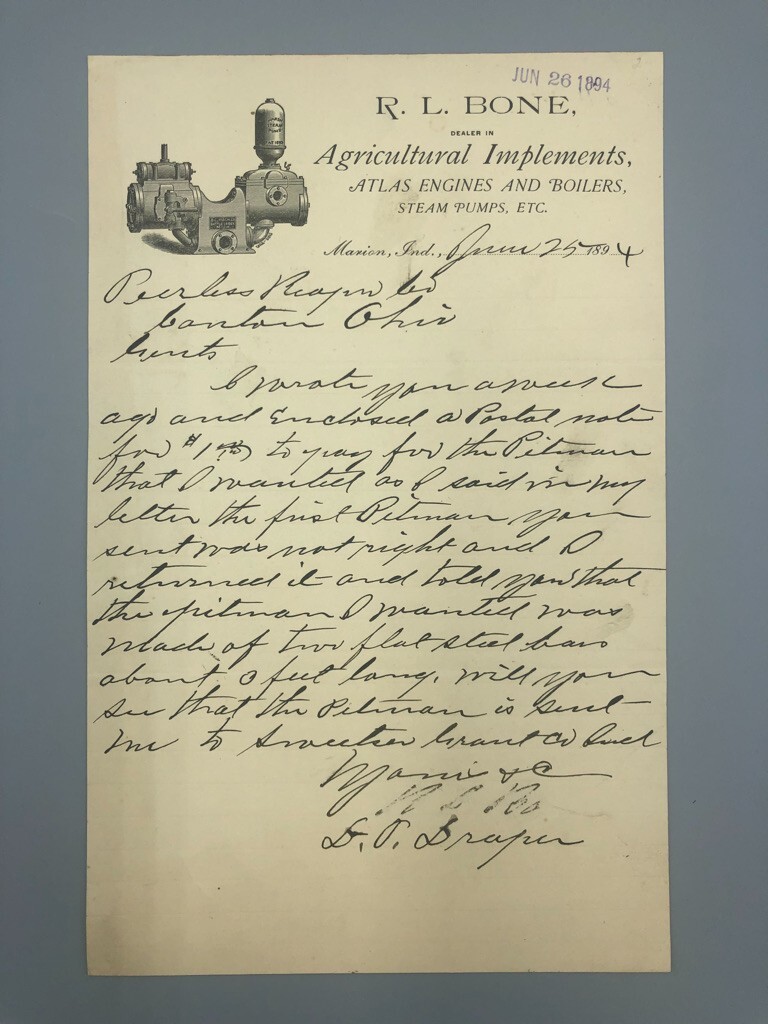 JUN 26 1894
R. L. BONE,
DEALER IN
Agricultural Implements,
ATLAS ENGINES AND BOILERS,
STEAM PUMPS, ETC.
Marion, Ind., June 25 1894
Peerless Reaper Co
Canton Ohio
Gents
I wrote you a week
ago and Enclosed a Postal note
for $1.00 to pay for the Pitman
that I wanted as I said in my
letter the first Pitman you
sent was not right and I
returned it and told you that
the pitman I wanted was
made of two flat steel bars
about 3 feet long. Will you
see that the Pitman is sent
me to Sweetser Grant Co Ind
Yours &C
R L
D. P. Draper